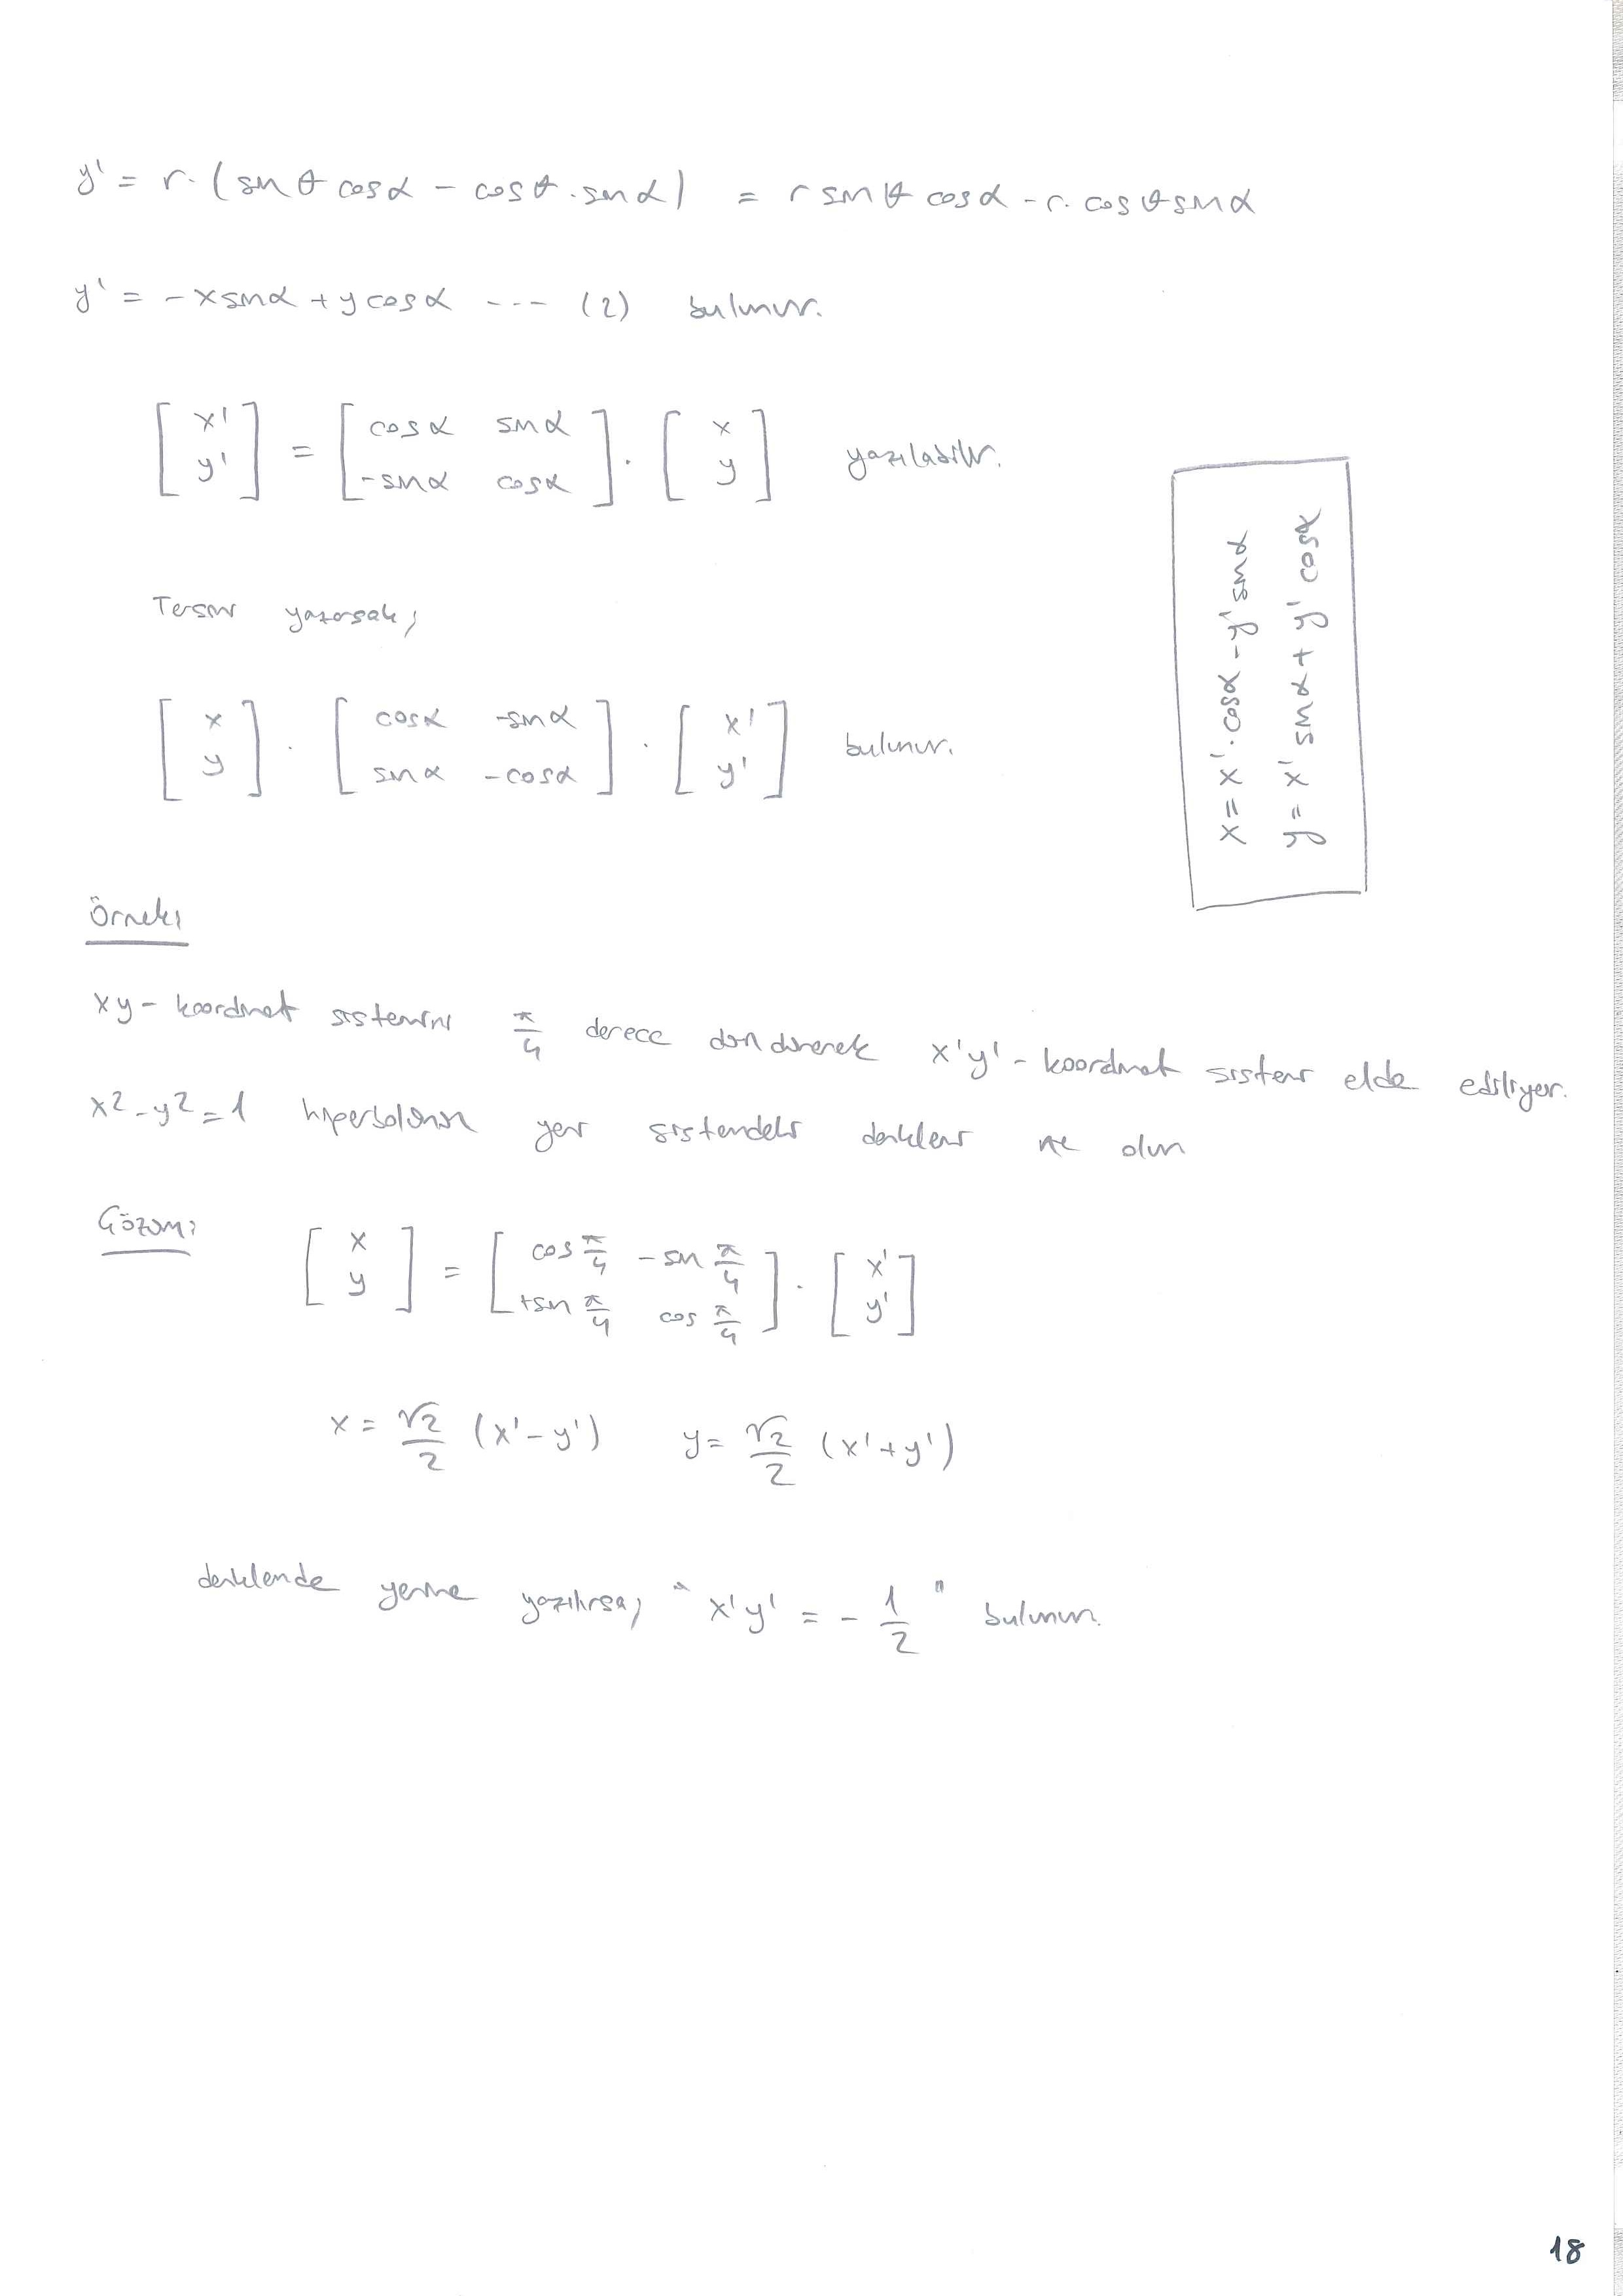 y' = r. (sin θ cosα - cosθ.sinα) = r sinθ cosα - r. cosθ sinα
y' = -x sinα + y cosα --- (2) bulunur.
[ x' ] = [ cosα sinα ] . [ x ] yazılabilir.
[ y' ] [ -sinα cosα ] [ y ]
Tersini yazarsak;
[ x ] . [ cosα -sinα ] . [ x' ] bulunur.
[ y ] [ sinα -cosα ] [ y' ]
x = x'.cosα - y' sinα
y = x' sinα + y' cosα
Örnek:
xy- koordinat sistemini π/4 derece döndürerek x'y'- koordinat sistemi elde ediliyor.
x² - y² = 1 hiperbolünün yeni sistemdeki denklemi ne olur
Çözüm:
[ x ] = [ cos π/4 -sin π/4 ] . [ x' ]
[ y ] [ +sin π/4 cos π/4 ] [ y' ]
x = √2/2 (x' - y') y = √2/2 (x' + y')
denklemde yerine yazılırsa; " x'y' = - 1/2 " bulunur.
18